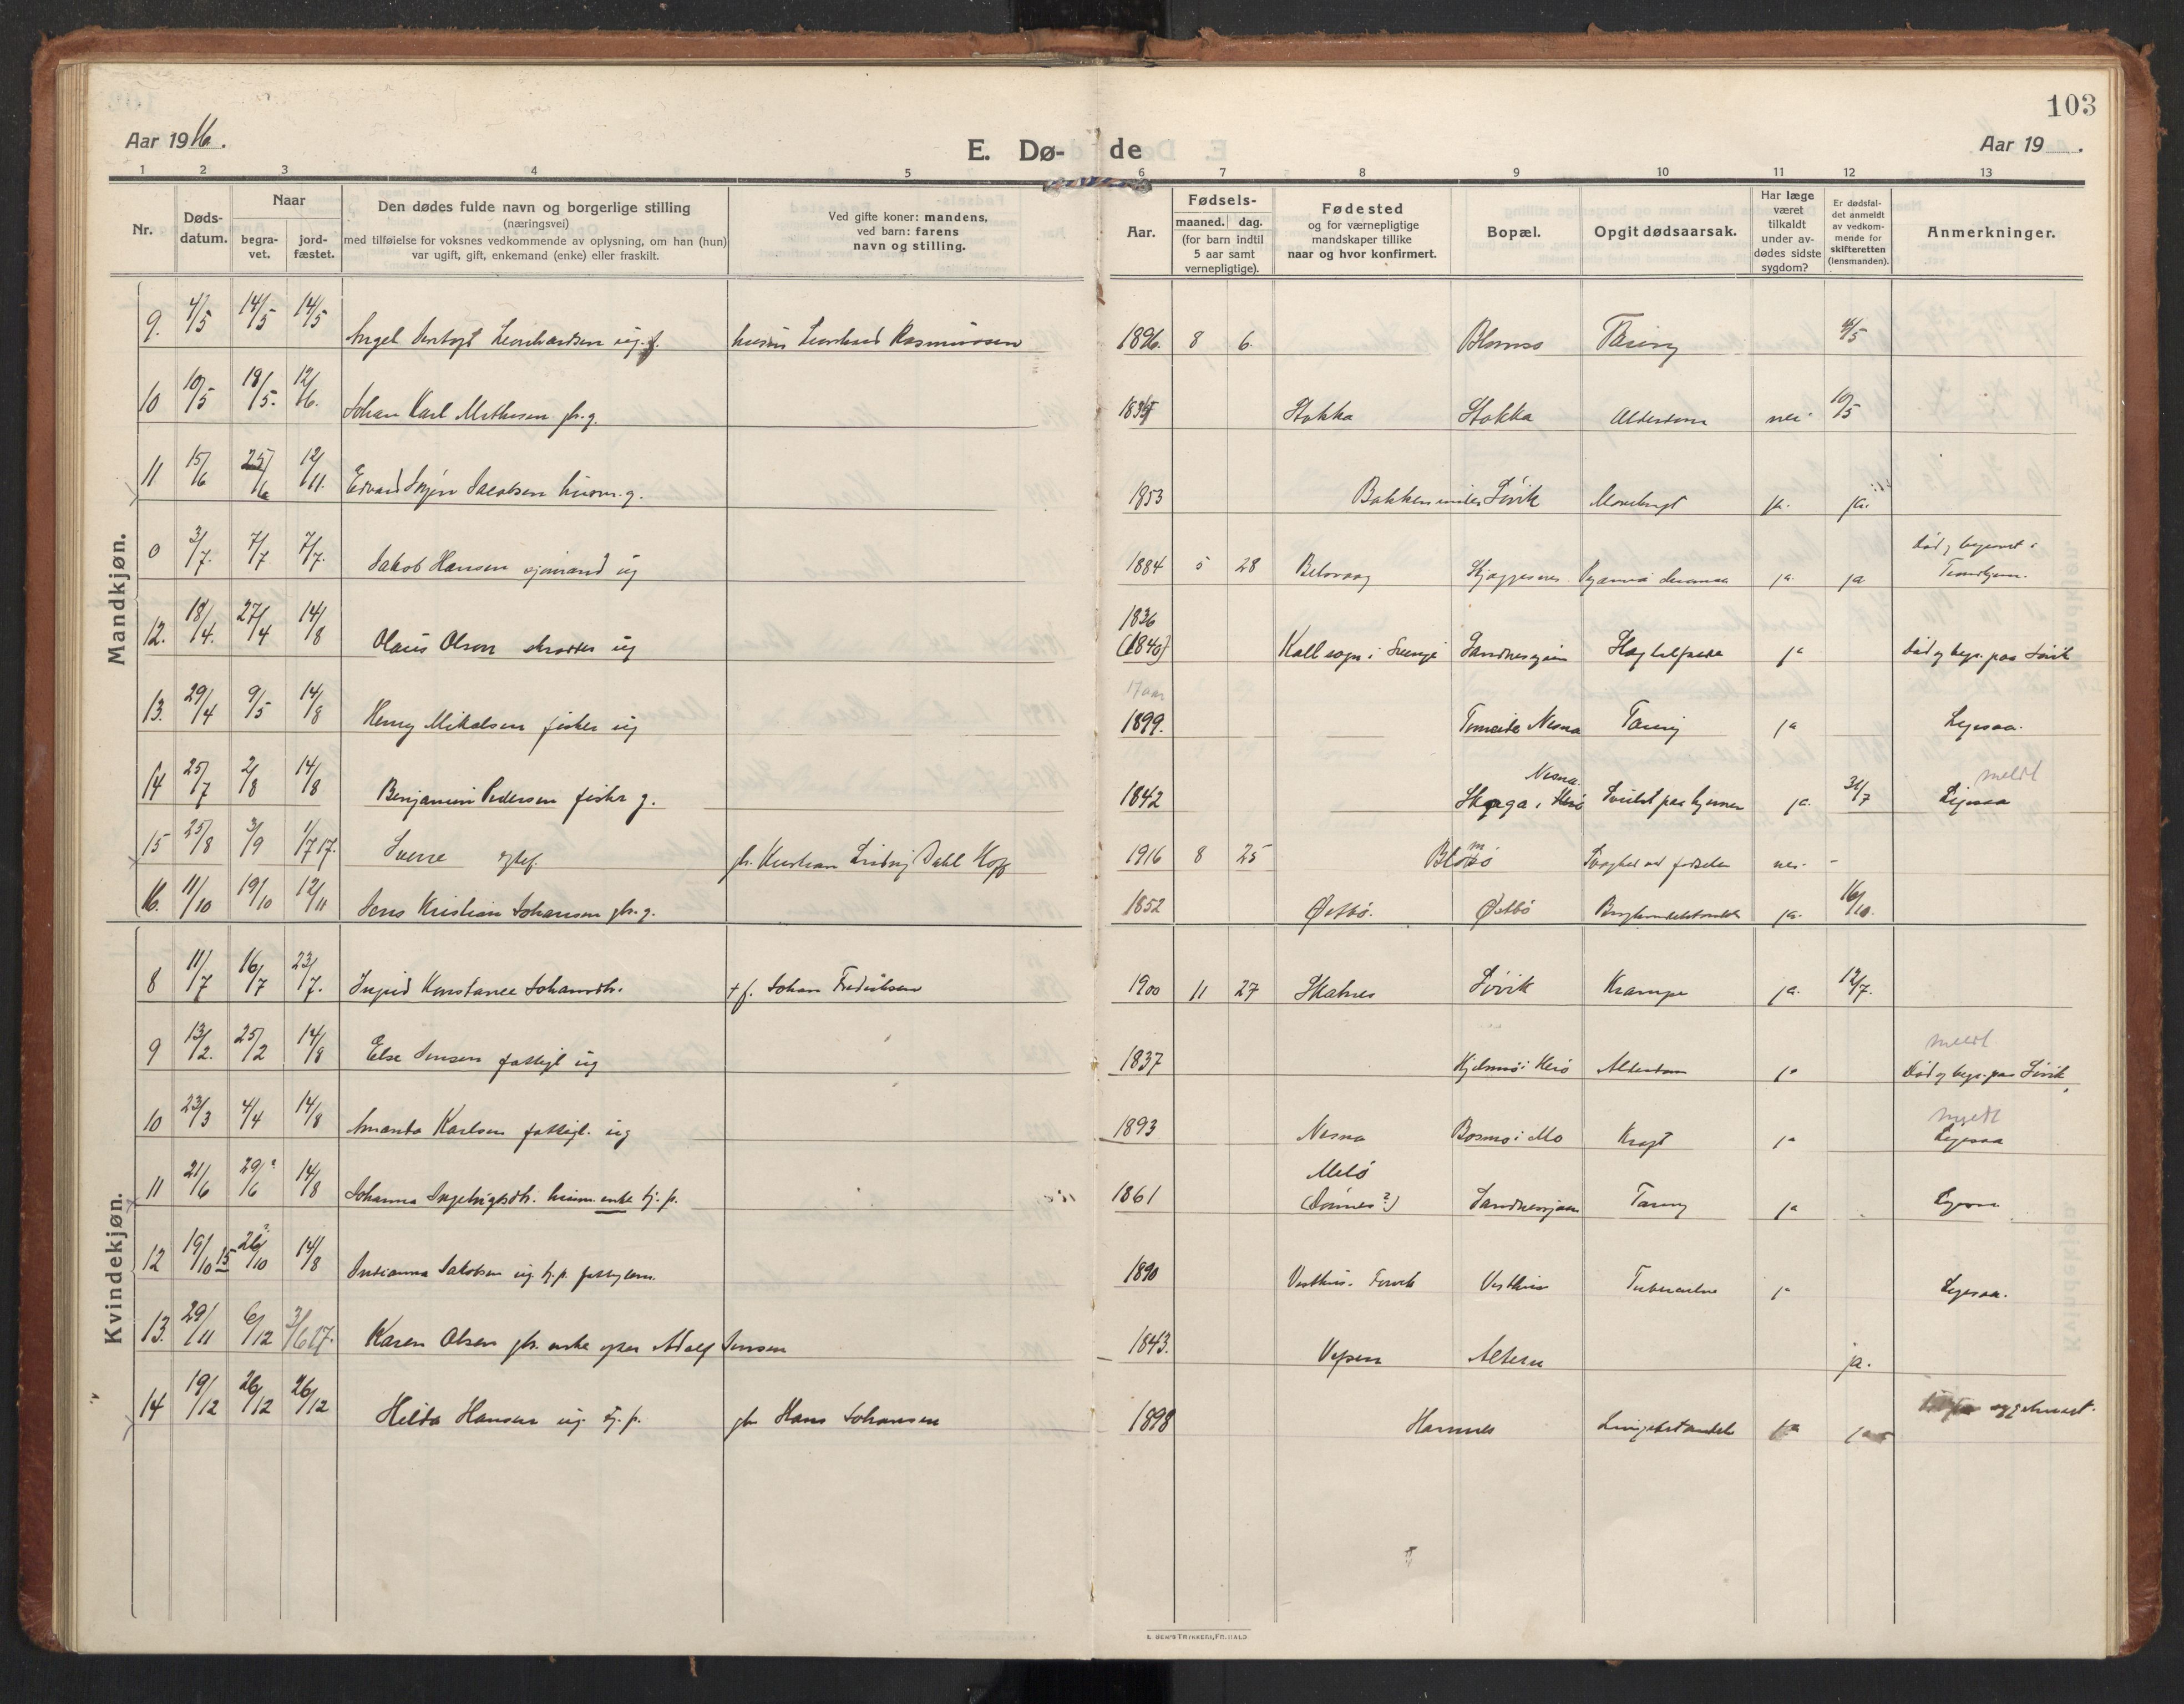 103
Aar 1916.
E. Dø-de
Aar 19 .
1 2 3 4 5 6 7 8 9 10 11 12 13
Nr.
Døds-
datum.
Naar
begra-
vet.
jord-
fæstet.
Den dødes fulde navn og borgerlige stilling
(næringsvei)
med tilføielse for voksnes vedkommende av oplysning, om han (hun)
var ugift, gift, enkemand (enke) eller fraskilt.
Ved gifte koner: mandens,
ved barn: farens
navn og stilling.
Aar.
Fødsels-
maaned. dag.
(for barn indtil
5 aar samt
vernepligtige).
Fødested
og for værnepligtige
mandskaper tillike
naar og hvor konfirmert.
Bopæl.
Opgit dødsaarsak.
Har læge
været
tilkaldt
under av-
dødes sidste
sygdom?
Er dødsfal-
det anmeldt
av vedkom-
mende for
skifteretten
(lensmanden).
Anmerkninger.
Mandkjøn.
9. 4/5 14/5 14/5 Leonhardsen ug. Leonhard Rasmussen 1896. 8 6. Tæring
10 10/5 18/5. 12/6. Johan Karl Mathisen gbr. g. Stokka Stokka Alderdom nei 10/5
11 15/6 25/6 12/11. Edvard Jacobsen husm. g. 1853 Bakken under Søvik ja. ja.
0 3/7. 7/7 7/7. Jakob Hansen sjømand ug 1884 5 28 Belsvaag ja. ja
Død og begravet i
12. 18/4. 27/4 14/8 Olaus Olsen skrædder ug
1836
(1840)
Sandnessjøen ja Død og begr. paa Søvik
17 aar
13. 29/4 9/5 14/8 Henry Mikalsen fisker ug 1899. Nesna Tæring ja Ligesaa.
Nesna. meldt
14 25/7 2/8 14/8 Benjamin Pedersen fisker g. 1842 Skaga i Herø ja. 31/7 Ligesaa
15 25/8 3/9 1/7 17. Sverre fr. Kristian Ludvig Dahl Hopp 1916 8 25 Blomsø Svaghet ved fødselen nei -
16. 11/10 19/10 12/11 Jens Kristian Johansen gbr. g. 1852 Østbø. Østbø ja. 16/10.
Kvindekjøn.
8 11/7 16/7 23/7. Ingrid Konstance Johansdtr. + f. Johan Fredriksen 1900 11 27 Skatnes Søvik Krampe ja. 12/7.
meldt
9 13/2. 25/2 14/8 Else Jensen fattigl ug 1837 Hjelmsø i Herø Alderdom ja Død og begr. paa Søvik
meldt
10 23/3 4/4 14/8 Amanda Karlsen fattigl. ug 1893 Nesna Bosmo i Mo Kræft ja Ligesaa
Melø
11 21/6 29/6? 14/8 Johanna Ingebrigtsdtr. husm. enke tj. p. 1861 (Dønnes?) Sandnessjøen Tæring ja Ligesaa
12 19/10 15 26/10? 14/8 Jakobsen ug. tj. p. 1890 Vesthus. Vesthus Tuberculose ja Ligesaa.
13. 29/11 6/12 3/6 17. Karen Olsen gbr. enke efter Adolf Jensen 1843. Vefsen Altern ja.
14 19/12 26/12 26/12 Hilda Hansen ug. tj. p. gbr Hans Johansen 1898 Hamnes ja